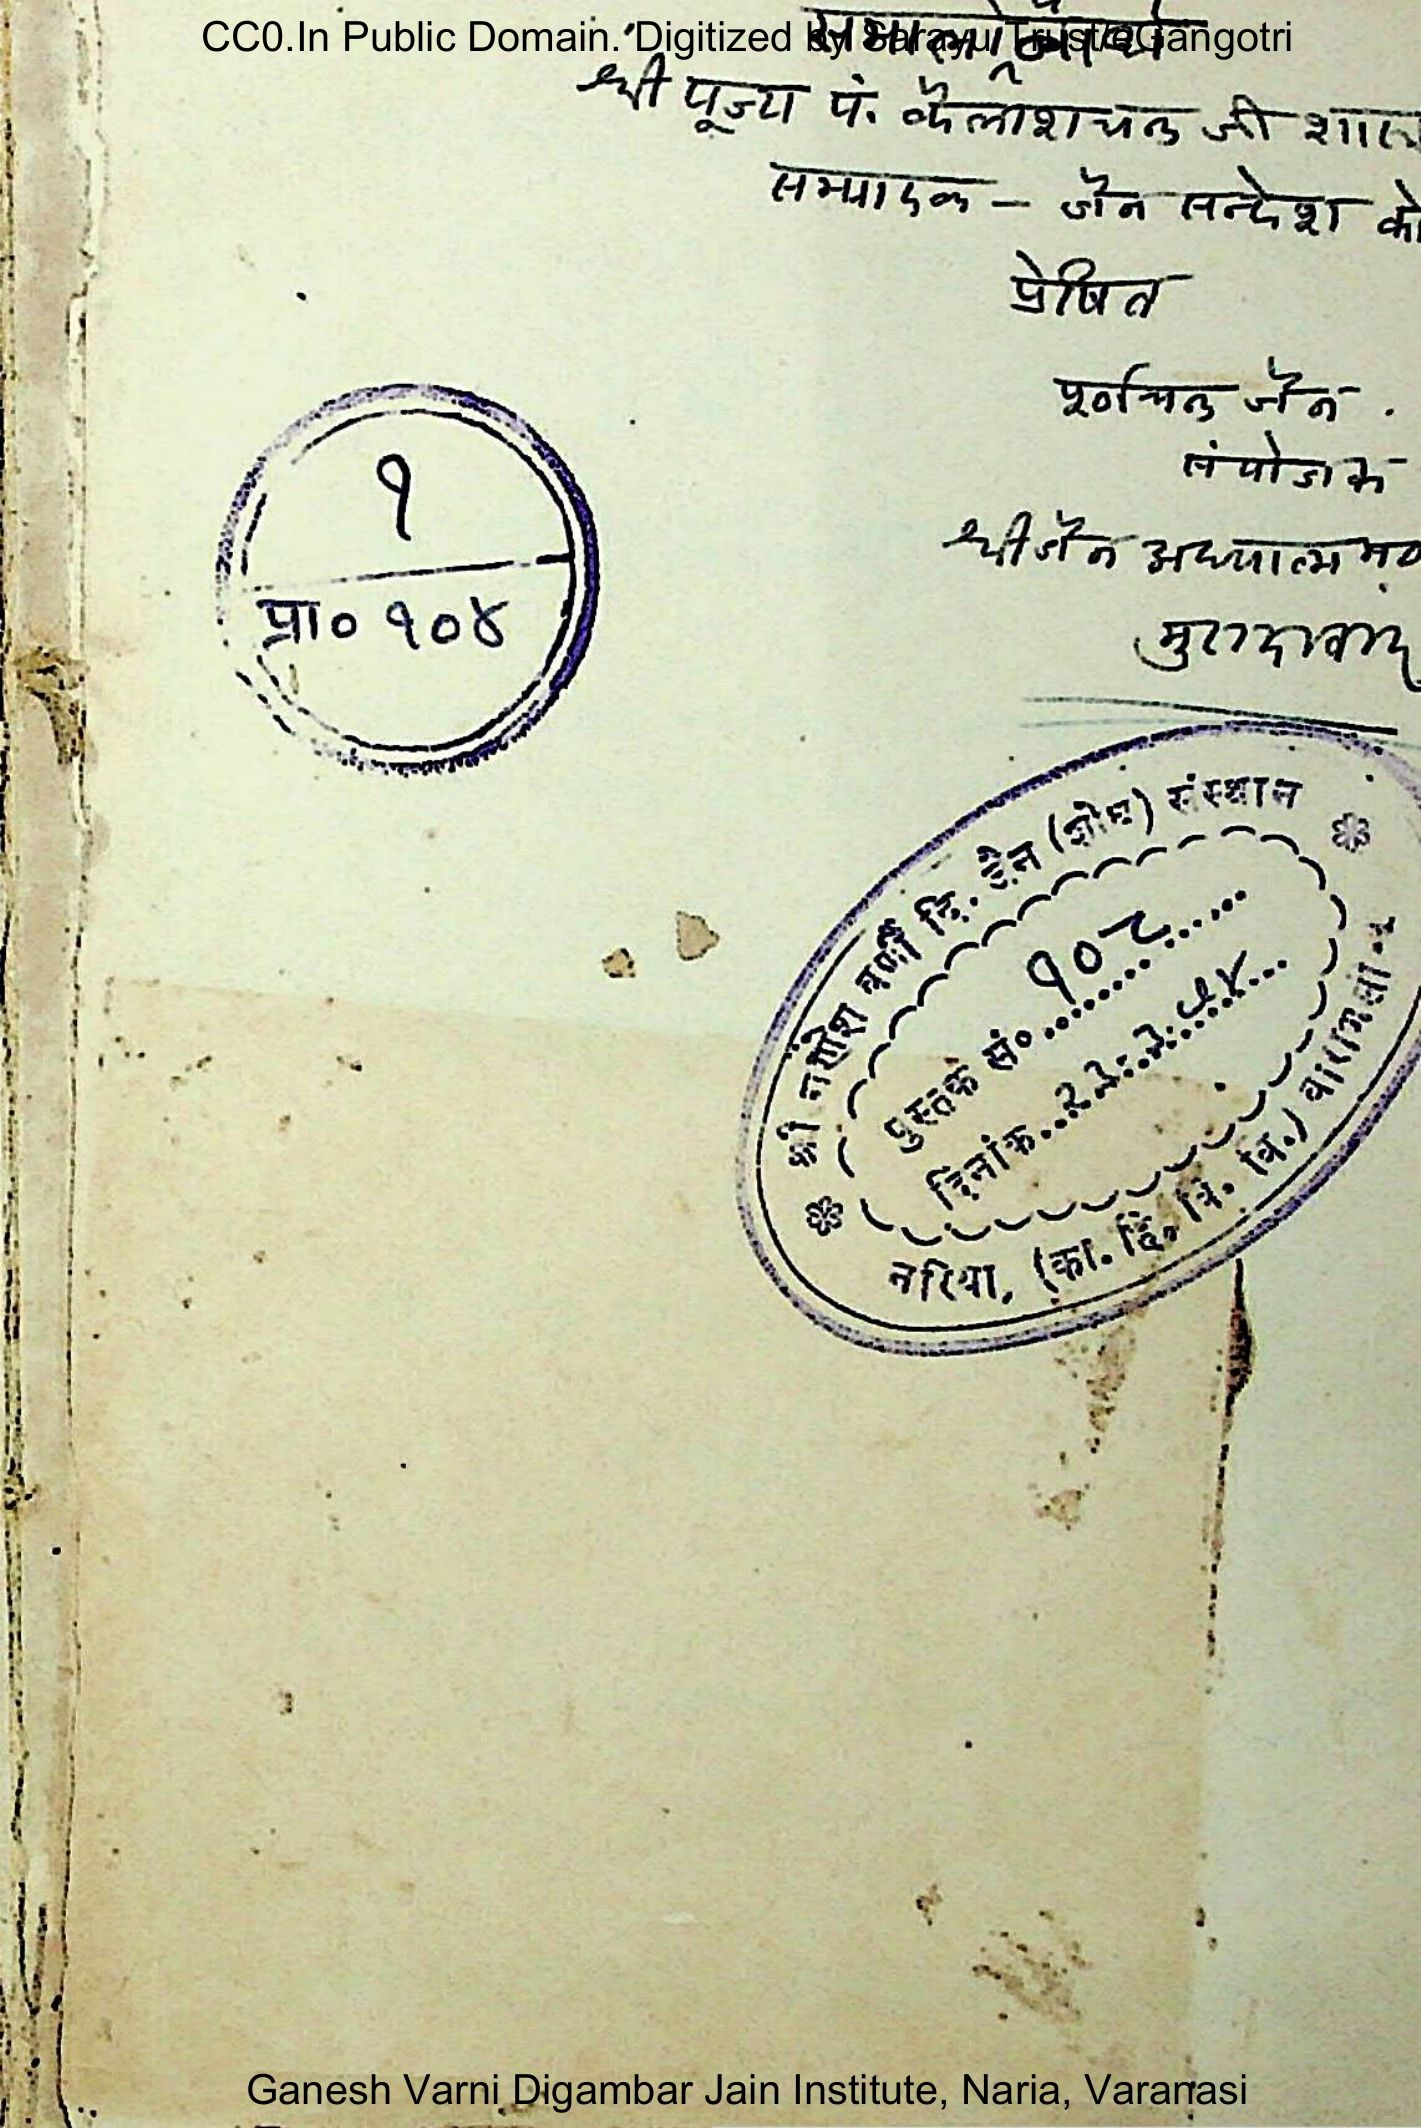 CC0.In Public Domain. Digitized by Sarayu Trust/eGangotri
समालोचनार्थ
श्री पूज्य पं. कैलाशचन्द्र जी शास्
सम्पादक – जैन सन्देश को
प्रेषित
पूर्णचन्द्र जैन .
संयोजक
श्री जैन अध्यात्म
मुरादाबाद
१
प्रा० १०४
श्री गणेश वर्णी दि. जैन (शोध) संस्थान
पुस्तक सं०
दिनांक
नरिया, (का. हि. वि. वि.) वाराणसी-५
Ganesh Varni Digambar Jain Institute, Naria, Varanasi